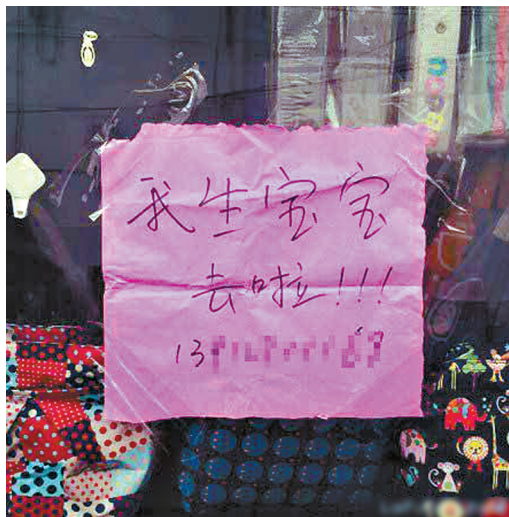 我生宝宝
去啦!!!
13